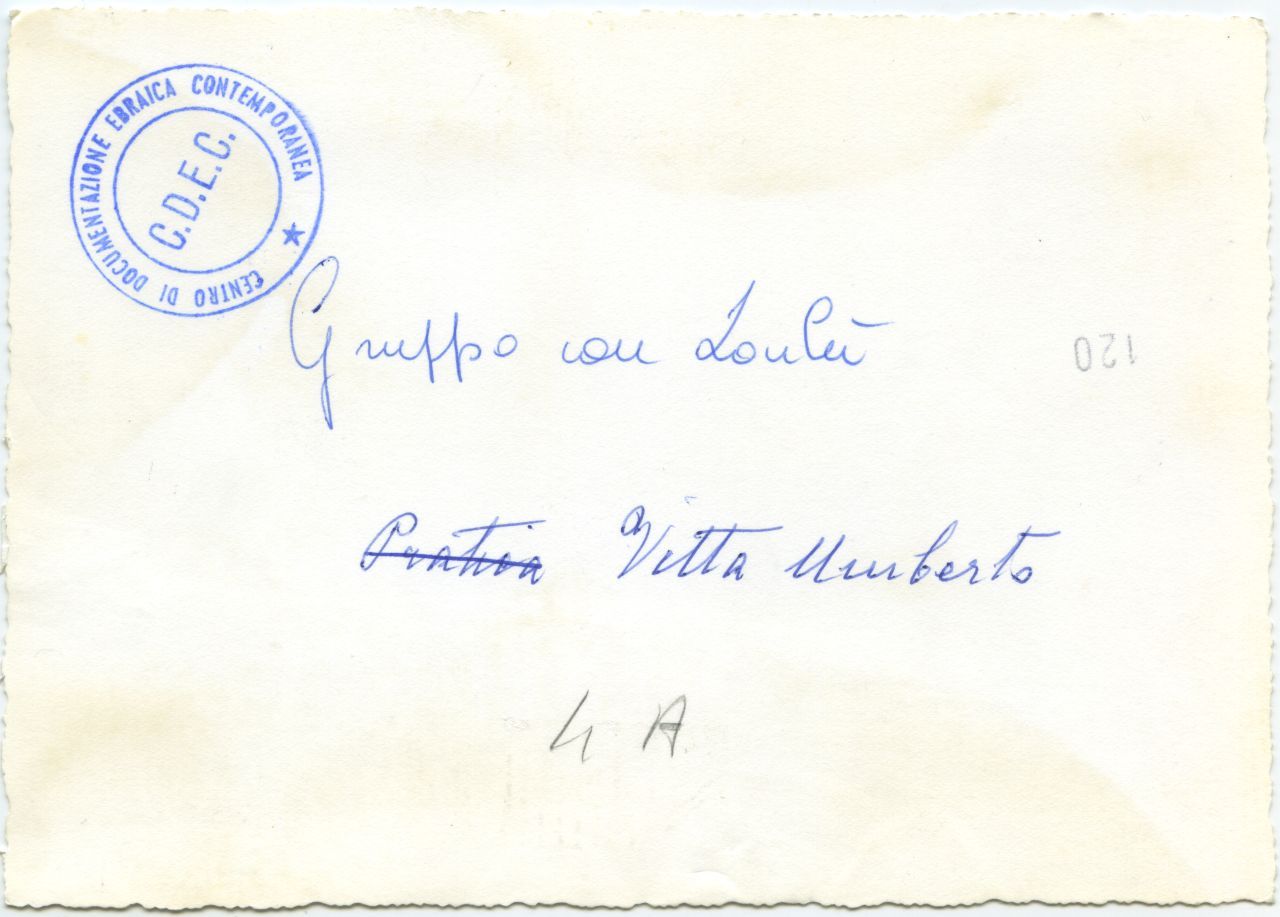 CENTRO DI DOCUMENTAZIONE EBRAICA CONTEMPORANEA ★
C.D.E.C.
Gruppo con
120
Vitta Umberto
4 A